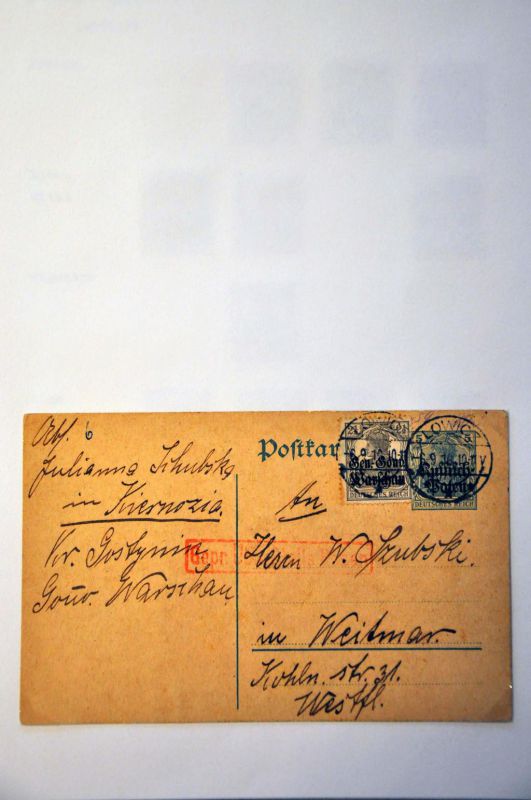 Abs. 6
Julianna Schubska
in Kiernozia
Kr. Gostynin
Gouv. Warschau.
Postkar
Gen.-Gouv.
Warschau
DEUTSCHES REICH
LOWICZ
DEUTSCHES REICH
An
Herrn W. Szubski.
in Weitmar.
Kohln. str. 31.
Westfl.